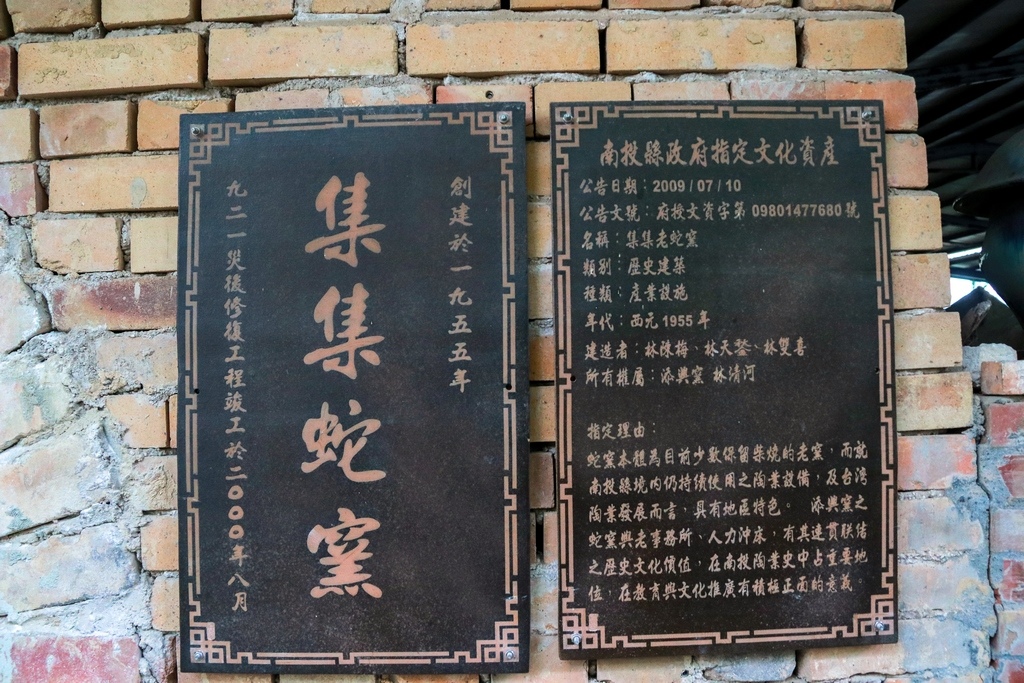 創建於一九五五年
集集蛇窯
九二一災後修復工程竣工於二000年八月
南投縣政府指定文化資產
公告日期：2009/07/10
公告文號：府授文資字第 09801477680 號
名稱：集集老蛇窯
類別：歷史建築
種類：產業設施
年代：西元 1955 年
建造者：林陳梅、林天鏧、林雙喜
所有權屬：添興窯 林清河
指定理由：
蛇窯本體為目前少數保留柴燒的老窯，而就
南投縣境內仍持續使用之陶業設備，及台灣
陶業發展而言，具有地區特色。 添興窯之
蛇窯與老事務所、人力沖床，有其連貫联結
之歷史文化價值，在南投陶業史中占重要地
位，在教育與文化推廣有積極正面的意義